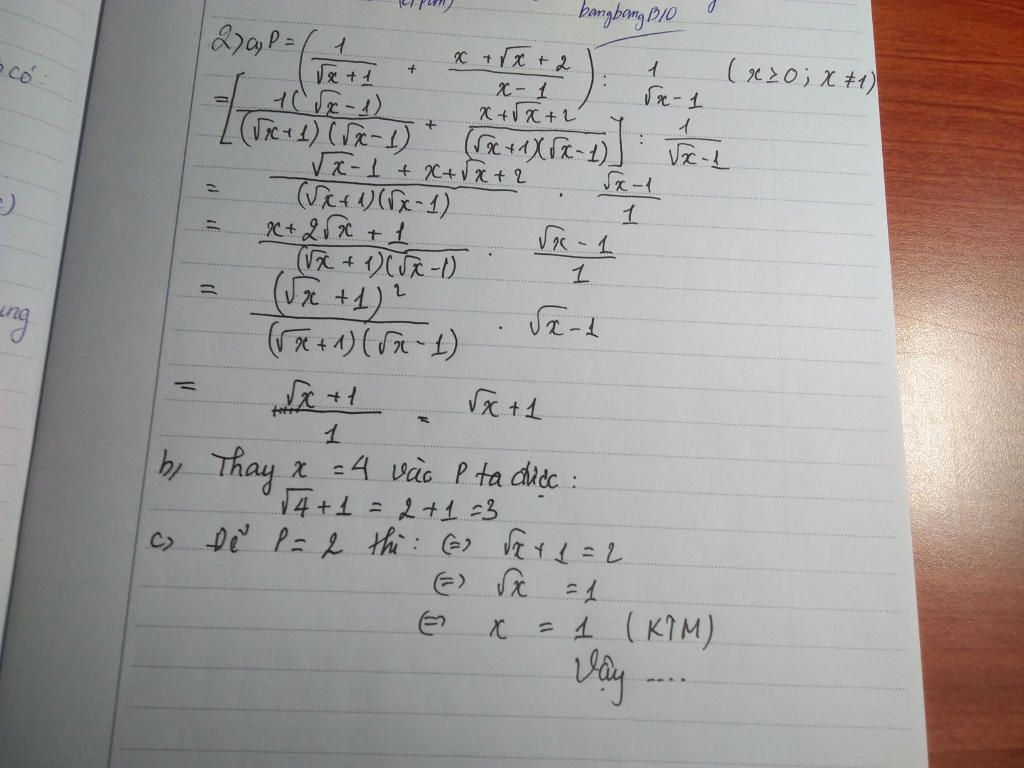 bangbang1310
2) a, P = ( 1/(√x + 1) + (x + √x + 2)/(x - 1) ) : 1/(√x - 1) ( x ≥ 0 ; x ≠ 1)
= [ 1(√x - 1)/((√x + 1)(√x - 1)) + (x + √x + 2)/((√x + 1)(√x - 1)) ] : 1/(√x - 1)
= (√x - 1 + x + √x + 2)/((√x + 1)(√x - 1)) . (√x - 1)/1
= (x + 2√x + 1)/((√x + 1)(√x - 1)) . (√x - 1)/1
= (√x + 1)²/((√x + 1)(√x - 1)) . √x - 1
= (√x + 1)/1 = √x + 1
b, Thay x = 4 vào P ta được :
√4 + 1 = 2 + 1 = 3
c, Để P = 2 thì : <=> √x + 1 = 2
<=> √x = 1
<=> x = 1 (KTM)
Vậy ....
có :
ung